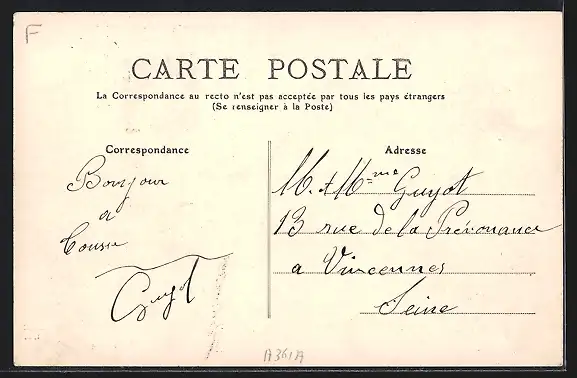 F
CARTE POSTALE
La Correspondance au recto n'est pas acceptée par tous les pays étrangers
(Se renseigner à la Poste)
Correspondance
Bonjour
a
Tousse
Guyot
Adresse
M. & M=me Guyot
13 rue de la Prévoyance
a Vincennes
Seine
A361A